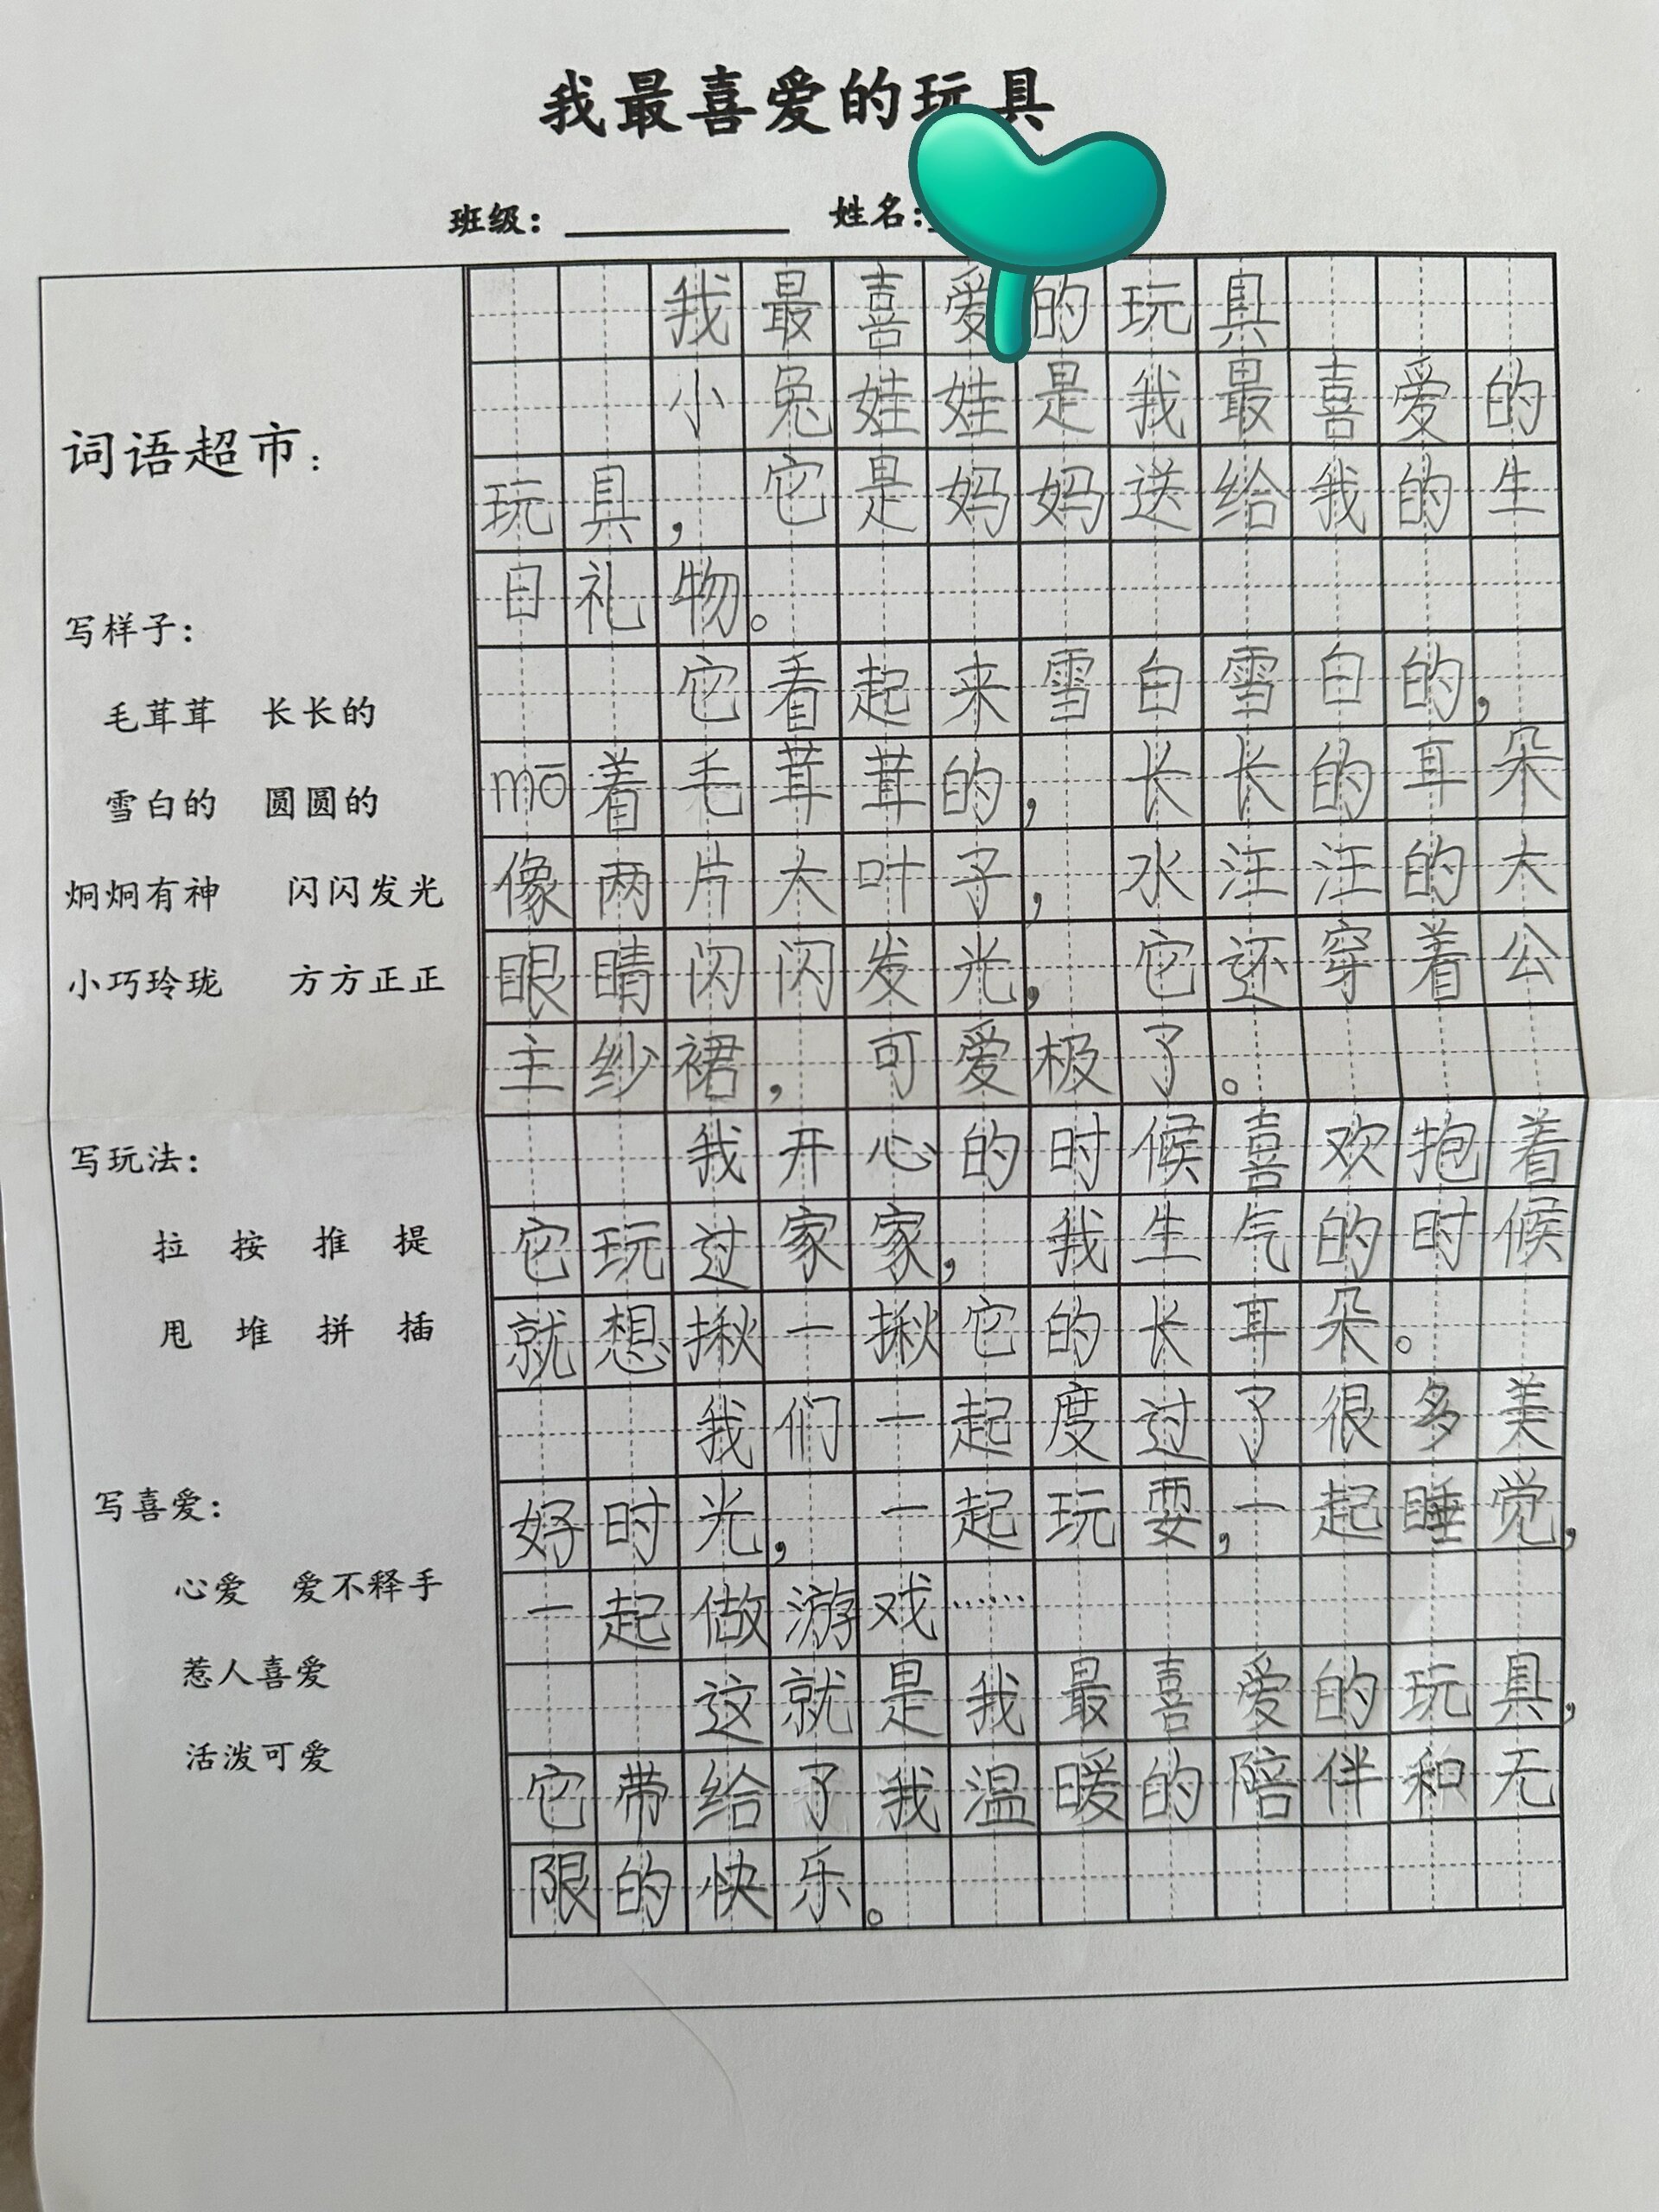 我最喜爱的玩具
班级： 姓名：
词语超市：
写样子：
毛茸茸 长长的
雪白的 圆圆的
炯炯有神 闪闪发光
小巧玲珑 方方正正
写玩法：
拉 按 推 提
甩 堆 拼 插
写喜爱：
心爱 爱不释手
惹人喜爱
活泼可爱
我最喜爱的玩具
小兔娃娃是我最喜爱的
玩具，它是妈妈送给我的生
日礼物。
它看起来雪白雪白的，
mō着毛茸茸的，长长的耳朵
像两片大叶子，水汪汪的大
眼睛闪闪发光，它还穿着公
主纱裙，可爱极了。
我开心的时候喜欢抱着
它玩过家家，我生气的时候
就想揪一揪它的长耳朵。
我们一起度过了很多美
好时光，一起玩耍，一起睡觉，
一起做游戏……
这就是我最喜爱的玩具，
它带给了我温暖的陪伴和无
限的快乐。